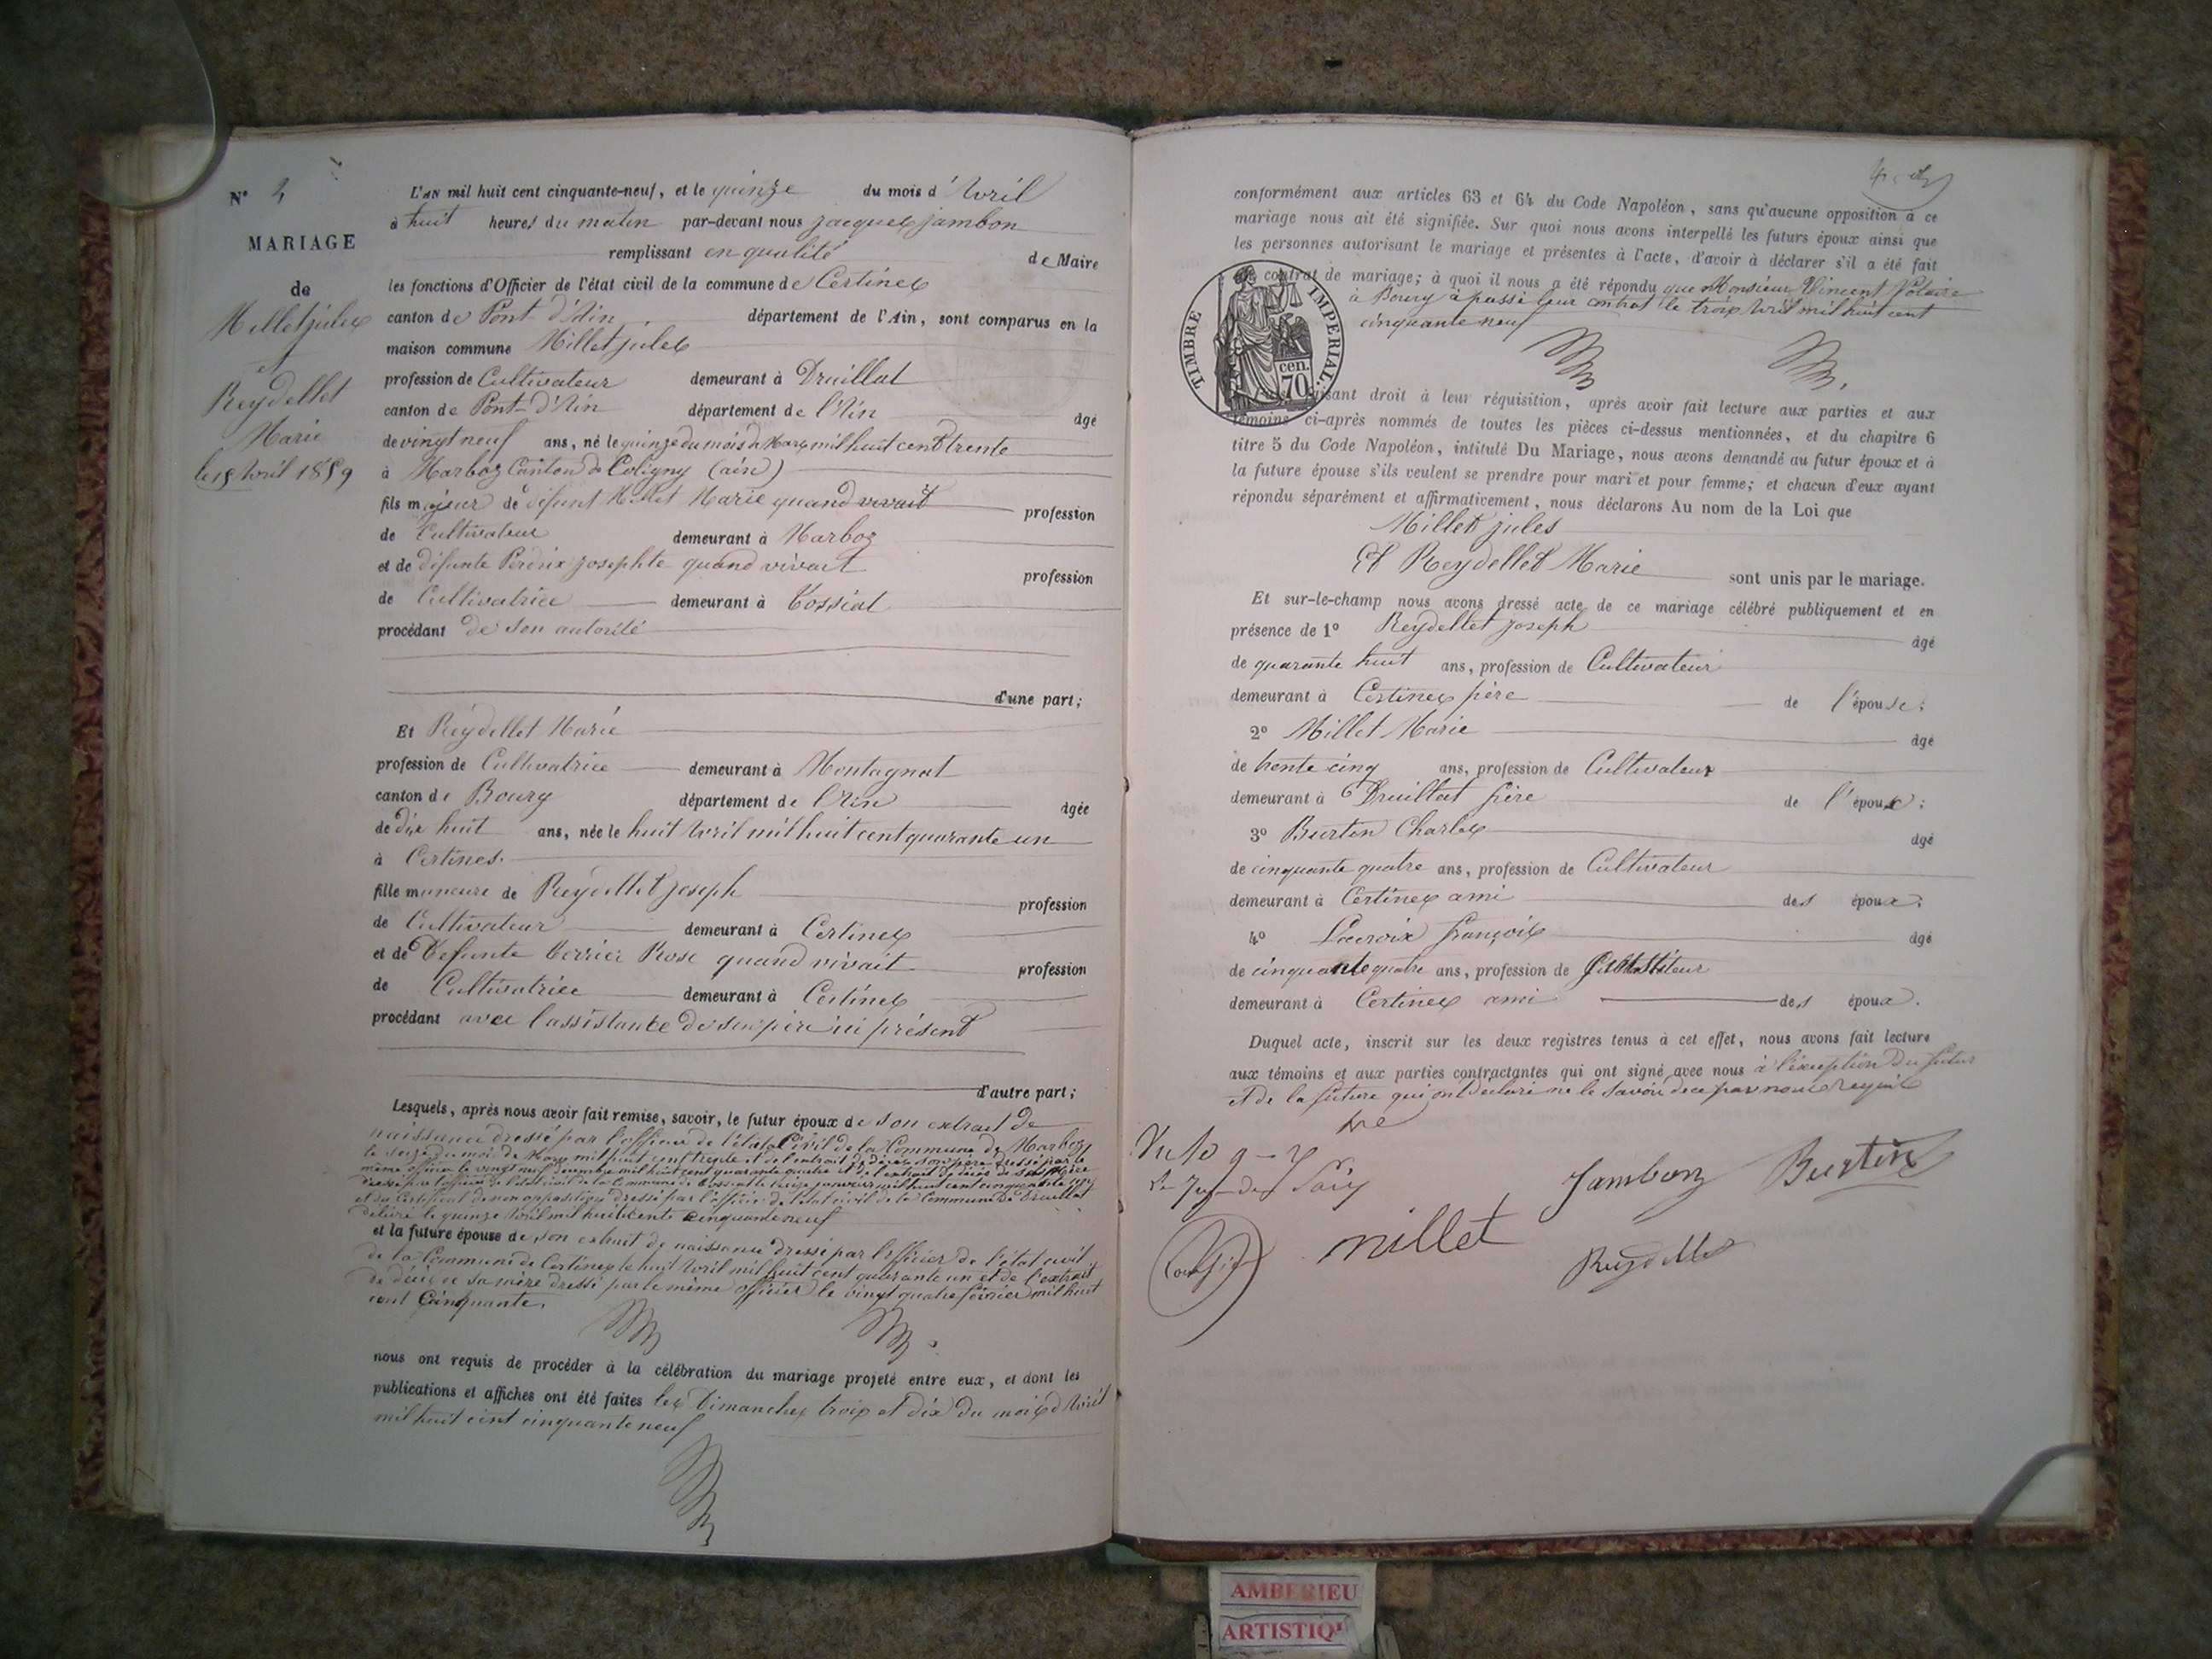 N° 4
MARIAGE
de
Millet jules
et
Reydellet
Marie
le 15 Avril 1859
L'AN mil huit cent cinquante-neuf, et le quinze du mois d'Avril
à huit heures du matin par-devant nous jacques jambon
remplissant en qualité de Maire
les fonctions d'Officier de l'état civil de la commune de Certines
canton de Pont d'Ain, département de l'Ain, sont comparus en la
maison commune Millet jules
profession de Cultivateur demeurant à Druillat
canton de Pont-d'Ain département de l'Ain âgé
de vingt neuf ans, né le quinze du mois de Mars mil huit cent trente
à Marboz Canton de Coligny (ain)
fils majeur de défunt Millet Marie quand vivait profession
de Cultivateur demeurant à Marboz
et de défunte Perdrix josephte quand vivait profession
de Cultivatrice demeurant à Tossiat
procédant de son autorité
d'une part;
Et Reydellet Marie
profession de Cultivatrice demeurant à Montagnat
canton de Bourg département de l'Ain âgée
de dix huit ans, née le huit Avril mil huit cent quarante un
à Certines.
fille mineure de Reydellet joseph profession
de Cultivateur demeurant à Certines
et de Défunte Verrier Rose quand vivait profession
de Cultivatrice demeurant à Certines
procédant avec l'assistance de son père ici présent
d'autre part;
Lesquels, après nous avoir fait remise, savoir, le futur époux de son extrait de
naissance dressé par l'officier de l'état Civil de la Commune de Marboz
le seize du mois de Mars mil huit cent trente et de l'extrait de décès de son père dressé par le
même officier le vingt neuf décembre mil huit cent quarante quatre et de l'extrait de décès de sa Mère
dressé par l'officier de l'état civil de la Commune de Tossiat le seize janvier mil huit cent cinquante
et du Certificat de non opposition dressé par l'officier de l'état civil de la Commune de Druillat
délivré le quinze Avril mil huit cent cinquante neuf
et la future épouse de son extrait de naissance dressé par l'officier de l'état civil
de la Commune de Certines le huit Avril mil huit cent quarante un et de l'extrait
de décès de sa mère dressé par le même officier le vingt quatre février mil huit
cent Cinquante.
nous ont requis de procéder à la célébration du mariage projeté entre eux, et dont les
publications et affiches ont été faites les Dimanches trois et dix du mois d'Avril
mil huit cent cinquante neuf
conformément aux articles 63 et 64 du Code Napoléon, sans qu'aucune opposition à ce
mariage nous ait été signifiée. Sur quoi nous avons interpellé les futurs époux ainsi que
les personnes autorisant le mariage et présentes à l'acte, d'avoir à déclarer s'il a été fait
contrat de mariage; à quoi il nous a été répondu que Monsieur Vincent Notaire
à Bourg à passé leur contrat le trois Avril mil huit cent
cinquante neuf
TIMBRE IMPERIAL.
cen.
70
isant droit à leur réquisition, après avoir fait lecture aux parties et aux
témoins ci-après nommés de toutes les pièces ci-dessus mentionnées, et du chapitre 6
titre 5 du Code Napoléon, intitulé Du Mariage, nous avons demandé au futur époux et à
la future épouse s'ils veulent se prendre pour mari et pour femme; et chacun d'eux ayant
répondu séparément et affirmativement, nous déclarons Au nom de la Loi que
Millet jules
Et Reydellet Marie sont unis par le mariage.
Et sur-le-champ nous avons dressé acte de ce mariage célébré publiquement et en
présence de 1° Reydellet joseph âgé
de quarante huit ans, profession de Cultivateur
demeurant à Certines père de l'épouse;
2° Millet Marie âgé
de trente cinq ans, profession de Cultivateur
demeurant à Druillat frère de l'époux;
3° Burtin Charles âgé
de cinquante quatre ans, profession de Cultivateur
demeurant à Certines ami des époux;
4° Lacroix françois âgé
de cinquante quatre ans, profession de
demeurant à Certines ami des époux.
Duquel acte, inscrit sur les deux registres tenus à cet effet, nous avons fait lecture
aux témoins et aux parties contractantes qui ont signé avec nous à l'exception du futur
et de la future qui ont déclaré ne le savoir de ce par nous requis
Jambon Burtin
millet
Reydellet
AMBERIEU
ARTISTIQ